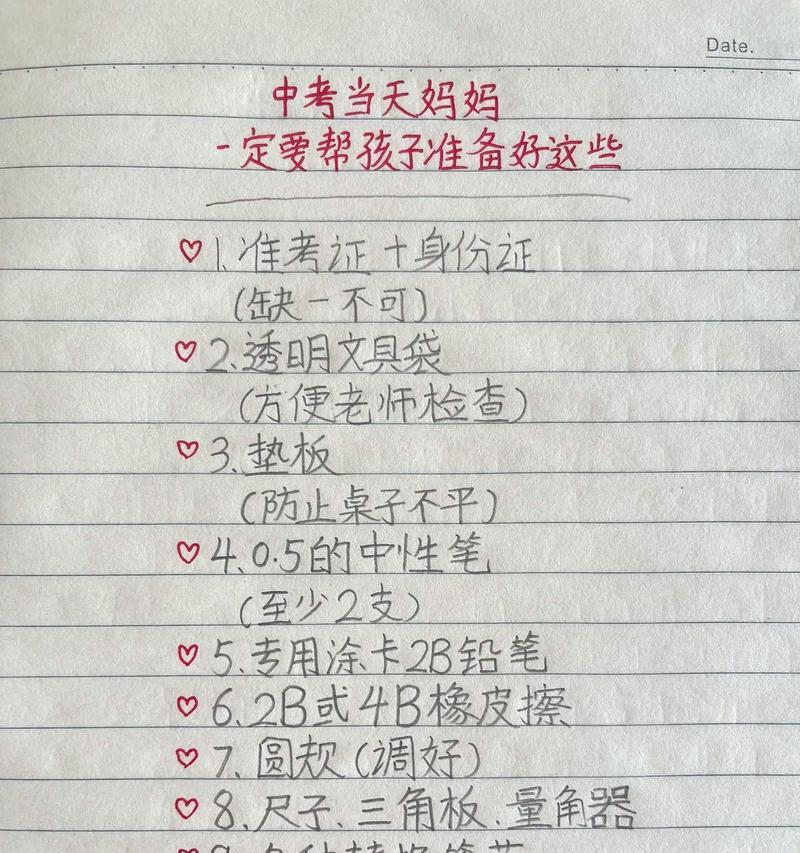 Date.
中考当天妈妈
一定要帮孩子准备好这些
1.准考证+身份证
(缺一不可)
2.透明文具袋
(方便老师检查)
3、垫板
(防止桌子不平)
4、0.5的中性笔
(至少2支)
5.专用涂卡2B铅笔
6、2B或4B橡皮擦
7、圆规(调好)
8、尺子、三角板、量角器